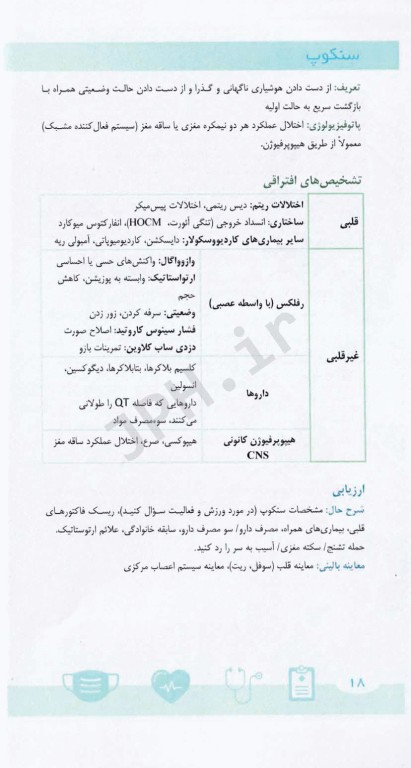 سنکوپ
تعریف: از دست دادن هوشیاری ناگهانی و گذرا و از دست دادن حالت وضعیتی همراه با
بازگشت سریع به حالت اولیه
پاتوفیزیولوژی: اختلال عملکرد هر دو نیمکره مغزی یا ساقه مغز (سیستم فعال‌کننده مشبک)
معمولاً از طریق هیپوپرفیوژن.
تشخیص‌های افتراقی
قلبی
اختلالات ریتم: دیس ریتمی، اختلالات پیس‌میکر
ساختاری: انسداد خروجی (تنگی آئورت، HOCM)، انفارکتوس میوکارد
سایر بیماری‌های کاردیووسکولار: دایسکشن، کاردیومیوپاتی، آمبولی ریه
غیرقلبی
رفلکس (با واسطه عصبی)
وازوواگال: واکنش‌های حسی یا احساسی
ارتواستاتیک: وابسته به پوزیشن، کاهش
حجم
وضعیتی: سرفه کردن، زور زدن
فشار سینوس کاروتید: اصلاح صورت
دزدی ساب کلاوین: تمرینات بازو
داروها
کلسیم بلاکرها، بتابلاکرها، دیگوکسین،
انسولین
داروهایی که فاصله QT را طولانی
می‌کنند، سوءمصرف مواد
هیپوپرفیوژن کانونی
CNS
هیپوکسی، صرع، اختلال عملکرد ساقه مغز
ارزیابی
شرح حال: مشخصات سنکوپ (در مورد ورزش و فعالیت سؤال کنید)، ریسک فاکتورهای
قلبی، بیماری‌های همراه، مصرف دارو/ سو مصرف دارو، سابقه خانوادگی، علائم ارتوستاتیک.
حمله تشنج/ سکته مغزی/ آسیب به سر را رد کنید.
معاینه بالینی: معاینه قلب (سوفل، ریت)، معاینه سیستم اعصاب مرکزی
۱۸
JPH.ir